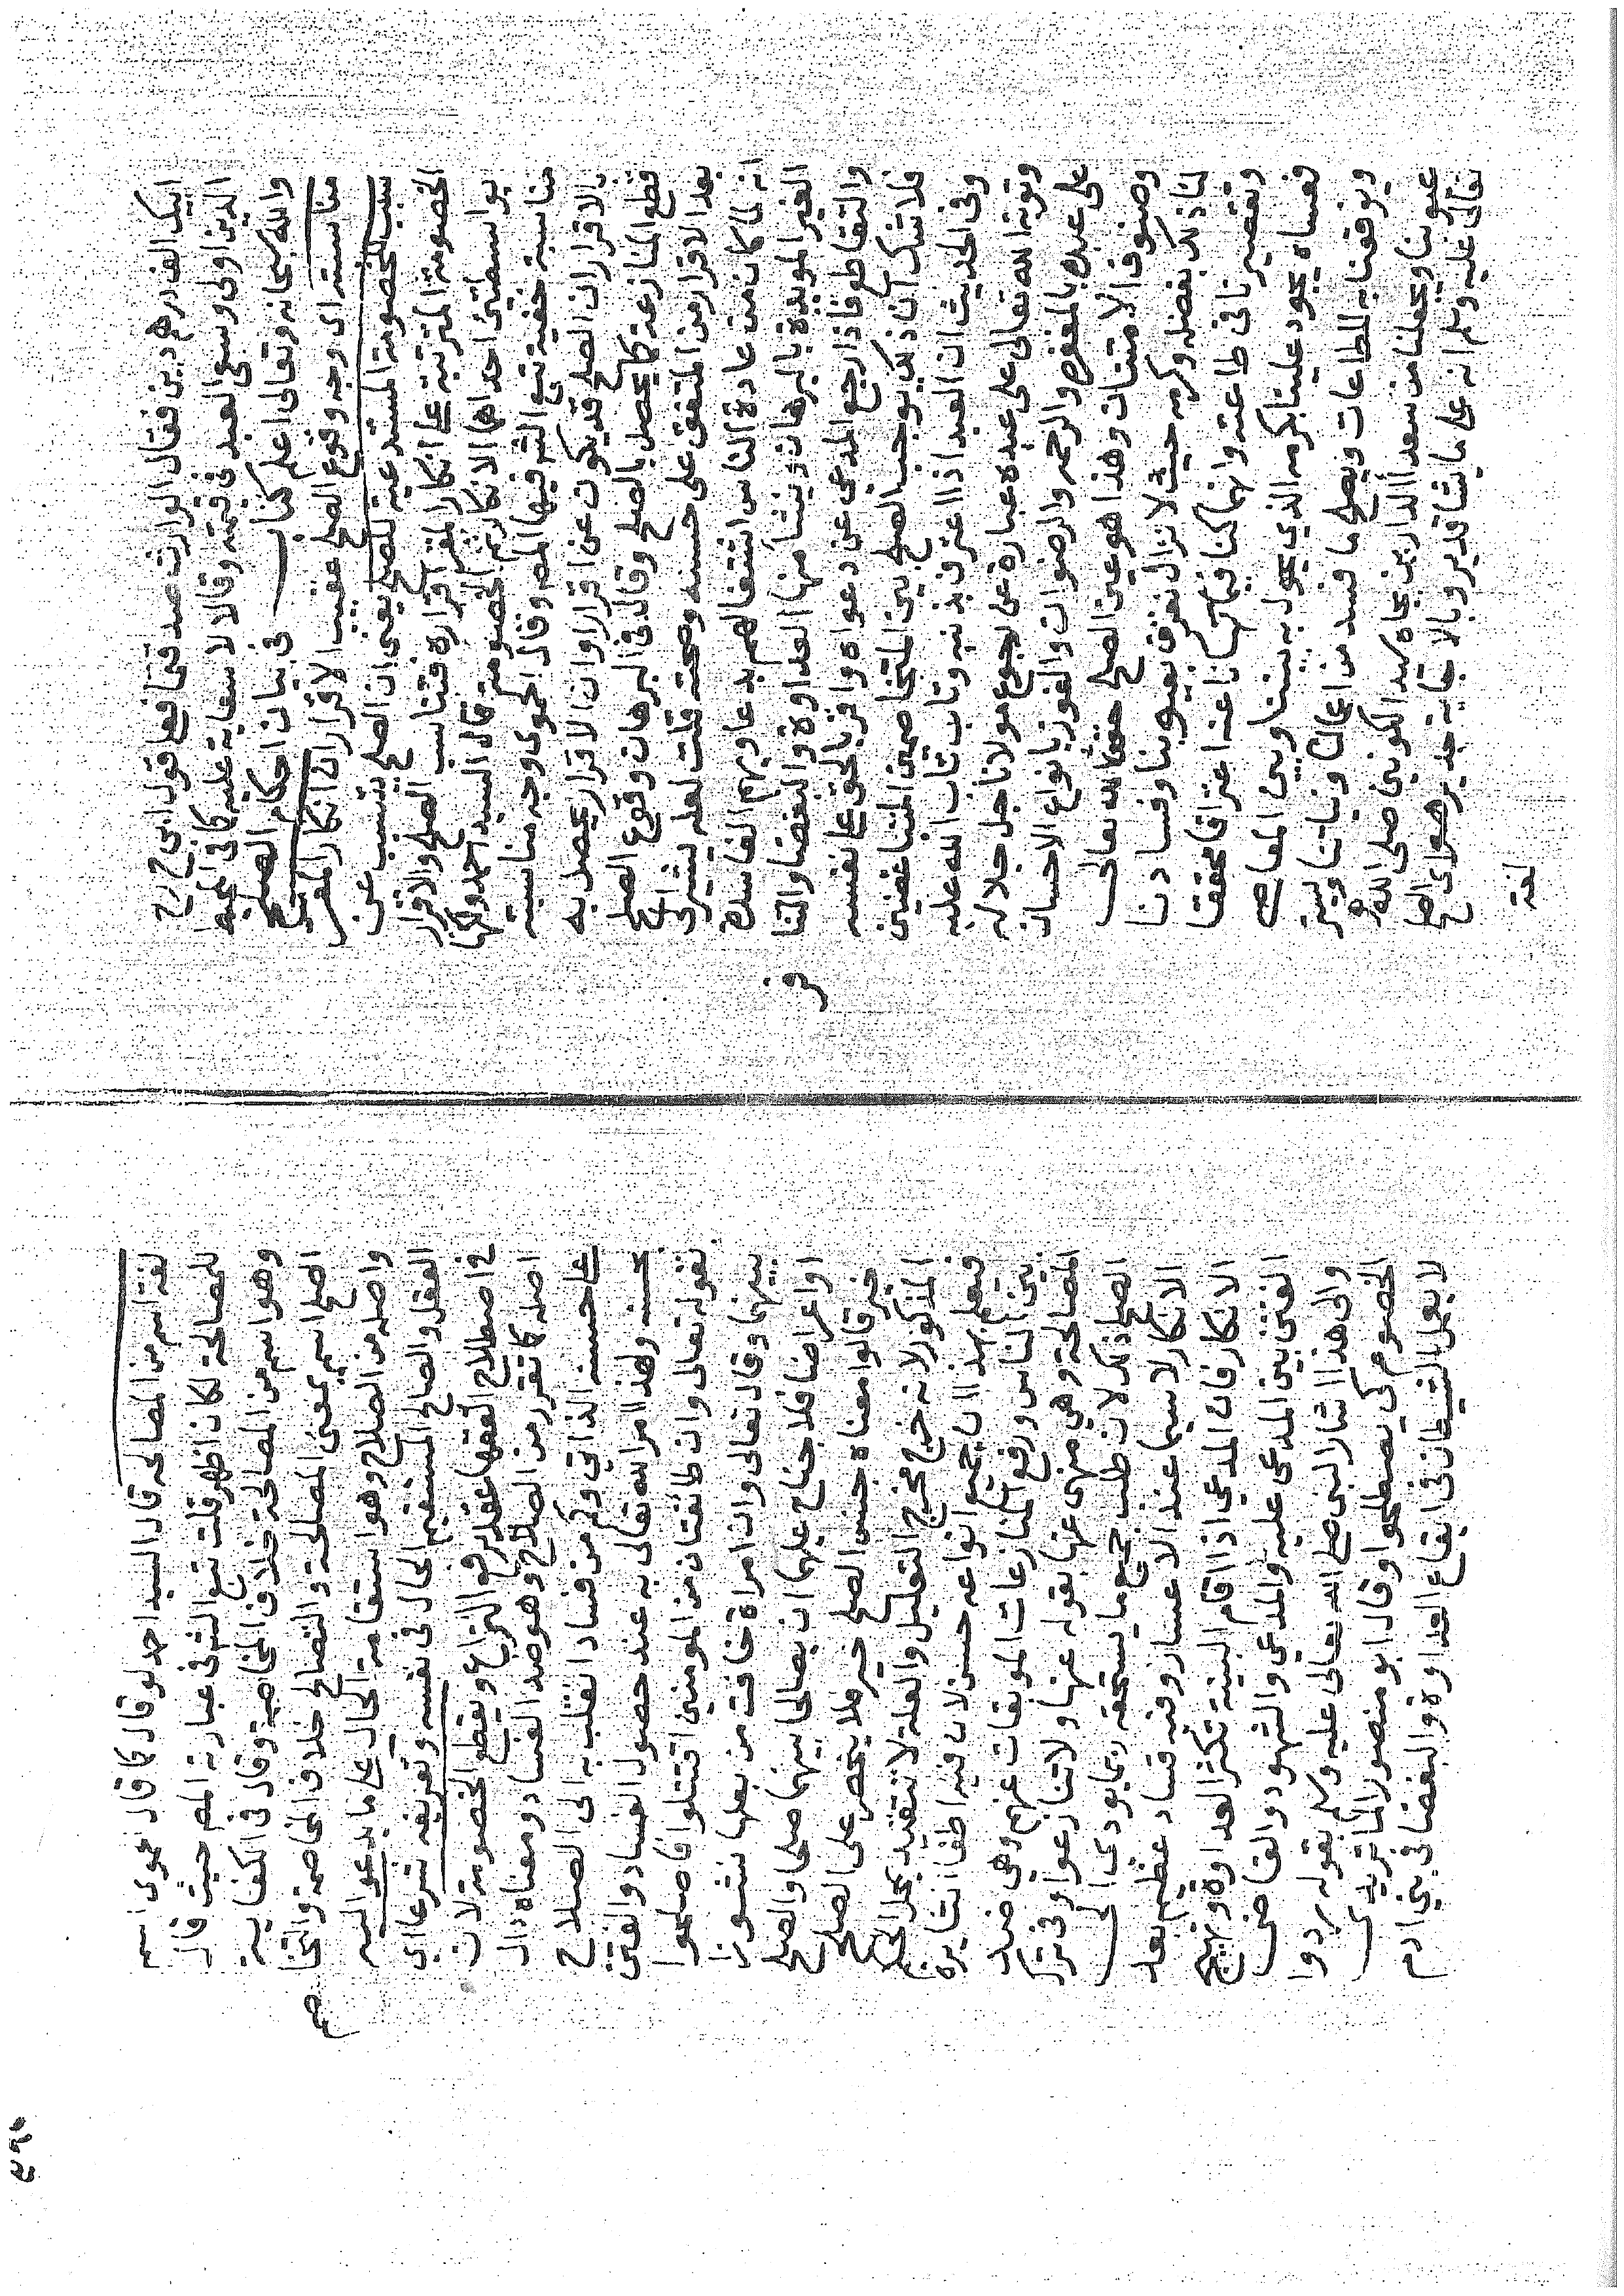 ابيك الف درهم دين فقال الوارث صدقتما فعلى قول ابي ح رح
الدين اولى وسعى العبد في قيمته وقالا لا سعاية عليه كما في المحيط
والله سبحانه وتعالى اعلم كتاب في بيان احكام الصلح
مناسبته اى وجه وقوع الصلح عقيب الاقرار ان انكار المقر
سبب للخصومة المستدعية للصلح يعنى ان الصلح يتسبب عن
الخصومة المترتبة على انكار المقر اقراره فتناسب الصلح والاقرار
بواسطتين احداهما الانكار ثم الخصومة قال السيد احمد ولكنها
مناسبة خفية تبع الشه فيها المص وقال الحموى وجه مناسبته
بالاقرار ان الصلح قد يكون عن اقرار وان الاقرار يحصل به
قطع المنازعة كما يحصل بالصلح وقال فى البرهان وقوع الصلح
بعد الاقرار من المتفق على حسنه وصحته قلت لعله يشير الى
انه لما كان من عادة الناس اشتغالهم بدعاويهم الفاسدة
الغير المويدة بالبرهان وينشأ منها العداوة والبغضا والتنا
فر
والتقاطع فاذا رجع المدعى عن دعواه واقر بالحق على نفسه
فلا شك ان ذلك يوجب الصلح بين المتخاصمين المتباغضين
وفى الحديث ان العبد اذا اعترف بذنبه وتاب تاب الله عليه
وتوبة الله تعالى على عبده عبارة عن رجوع مولانا جل جلاله
على عبده بالمغفرة والرحمه والرضوان والفوز بانواع الاحسان
وصنوف الامتنان وهذا هو عين الصلح حقق الله تعالى
لنا ذلك بفضله وكرمه حيث لا نزال نعترف بعيوبنا وفسادنا
وتقصيرنا فى طاعته وانهماكنا فيما نهانا عنه اعترافا محققا
فعساه يجود علينا بكرمه الذي يحول به بيننا وبين المعاصي
ويوفقنا به للطاعات ويصلح ما فسد من اعمالنا ونياتنا ويستر
عيوبنا ويجعلنا من سعداء الدارين بجاه سيد الكونين صلى الله
تعالى عليه وسلم انه على ما يشا قدير وبالاجابة جدير هو اى الصلح
لغة
لغة اسم من المصالحة قال السيد احمد لو قال كما قال الحموى اسم
للمصالحة لكان اظهر قلت تبع الشه فى عبارته المص حيث قال
وهو اسم من المصالحة خلاف المخاصمة وقال فى الكفاية
الصلح اسم بمعنى المصالحة والتصالح خلاف المخاصمة والتخا
صم
واصله من الصلاح وهو استقامة الحال على ما يدعو اليه
العقل والصالح المستقيم الحال فى نفسه وتعريفه شرعا اى
فى اصطلاح الفقها عقد يرفع النزاع ويقطع الخصومة لان
اصله كما تقرر من الصلاح وهو ضد الفساد ومعناه دال
على حسنه الذاتي وكم من فساد انقلب به الى الصلاح
بحسنه ولهذا امر الله تعالى به عند حصول الفساد والفتن
بقوله تعالى وان طائفتان من المومنين اقتتلوا فاصلحوا
بينهما وقال تعالى وان امراة خافت من بعلها نشوزا
او اعراضا فلا جناح عليهما ان يصالحا بينهما صلحا والصلح
خير قالوا معناه جنس الصلح خير فلا ينحصر على الصلح
المذكور لانه خرج مخرج التعليل والعلة لا تتقيد بمحل الحكم
فيعلم بهذا ان جميع انواعه حسن لان فيه اطفا النائرة
بين الناس ورفع المنازعات الموبقات عنهم وهي ضد
المصالحة وهي منهى عنها بقوله عنها ولا تنازعوا وفى ترك
الصلح ذلك لان طلب جميع ما يستحقه ربما يودى الى
الانكار لا سيما عند الاعسار وفيه فساد عظيم بعد
الانكار فان المدعي اذا اقام البينة تكثر العداوة وتهيج
الفتن بين المدعى عليه والمدعي والشهود والقاضى
والى هذا اشار النبى صلى الله تعالى عليه وسلم بقوله ردوا
الخصوم كى يصطلحوا وقال ابو منصور الماتريدى
لا يعمل الشيطان فى ايقاع العداوة والبغضا فى بني ادم